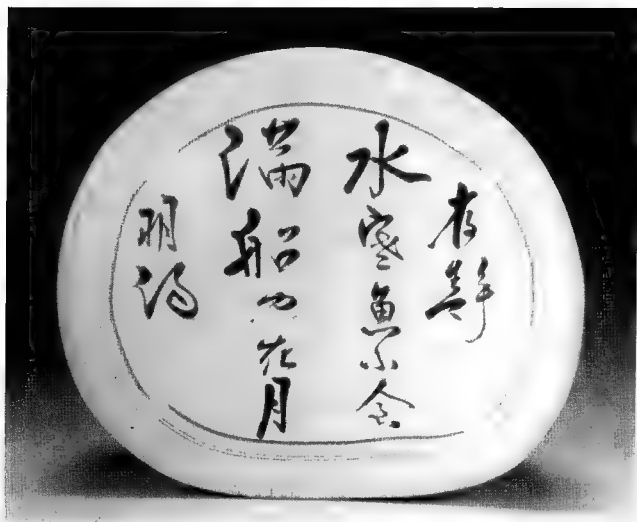 夜靜
水寒魚不食
滿船空載月
明歸